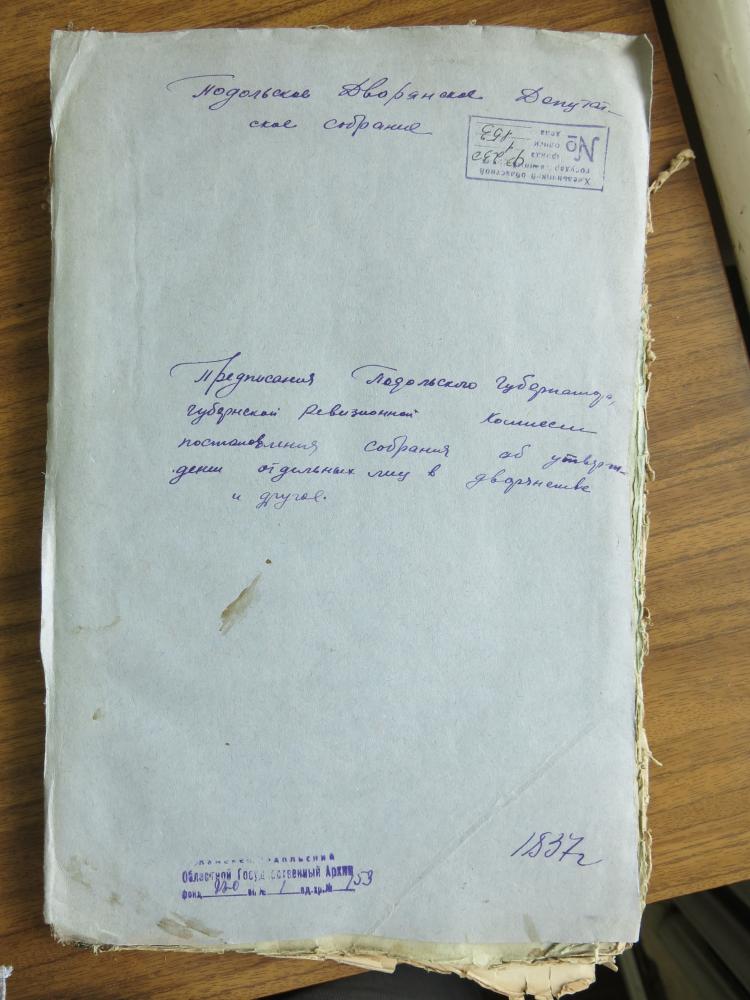 Подольское Дворянское Депутат-
ское собрание
Хмельницкий областной
государ
фонда Ф 230
№ описи 1
дела 153
Предписания Подольского Губернатора,
Губернской Ревизионной Комиссии
постановления собрания об утверж-
дении отдельных лиц в дворянстве
и другое.
1837 г
Подольский
Областной Государственный Архив
фонд 230 оп.№ 1 ед.хр.№ 153